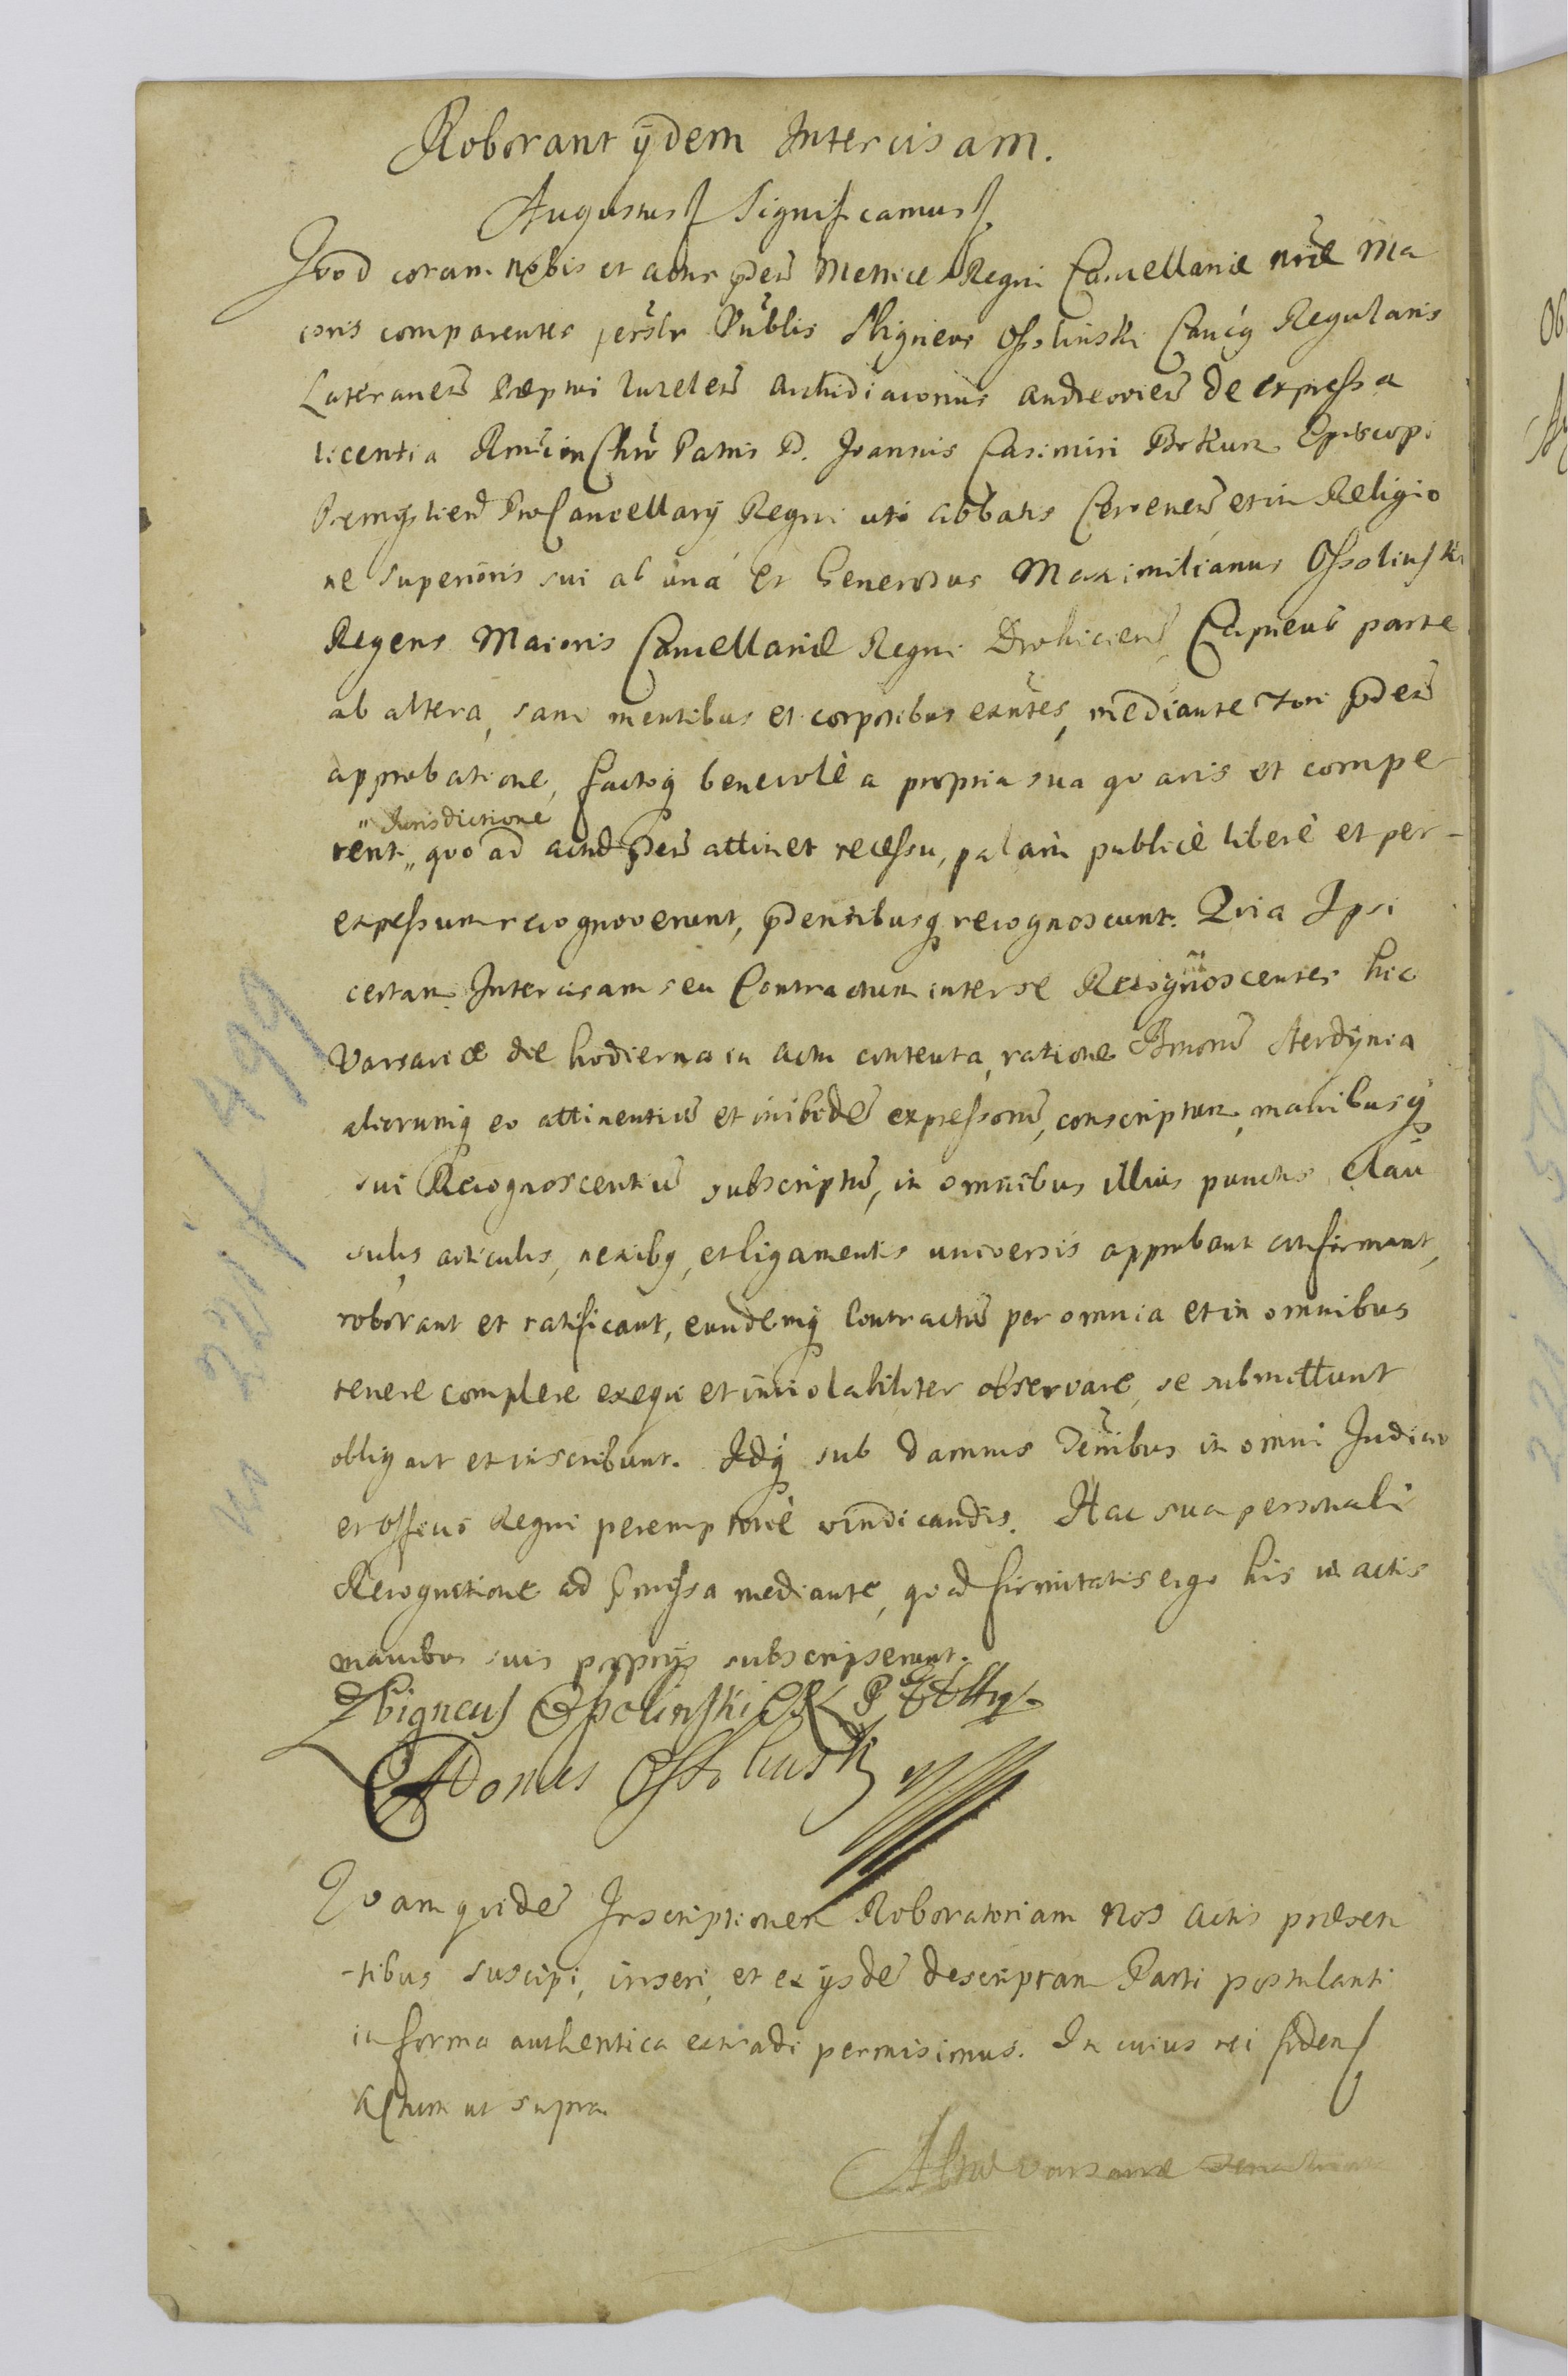 Roborant ijdem Intercisam.
Augustus Significamus
Qvod coram nobis et actis pñtibus Metrices Regni Cancellariæ nræ Ma
ioris comparentes persłr Vnblis Sbigneus Ossolinski Canćus Regularis
Lateranens Præptus Luzelens Archidiaconus andreoviens de expressa
licentia Rmi in Chrō Patris D. Joannis Casimiri Bokum Episcopi
Premysliens ProCancellarij Regni uti abbatis Cervenens et in Religio
ne superioris sui ab una et Generosus Maximilianus Ossolinski
Regens Maioris Cancellariæ Regni Drohiciens Capneus parte
ab altera, sani mentibus et corporibus exñtes, mediante Fori pñdens
approbatione, factoq benevole a propria sua qvavis et compe
"Jurisdictione
rent „ quo ad actũ pñdens attinet recessu, palam publice libere et per-
expressum recognoverunt, pñdentibusq recognoscunt. Qvia Ipsi
certam Intercisam seu Contractum inter se Recognoscentes hic
Varsaviæ die hodierna in actu contenta, ratione Bonorũ Sterdynia
aliorumq eo attinentiũ et inibidẽ expressorũ, conscriptum, manibusq
sui Recognoscentiũ subscriptũ, in omnibus illius punctis clau
sulis, articulis, nexibq, et ligamentis universis approbant confirmant,
roborant et ratificant, eundemq Contractũ per omnia et in omnibus
tenere complere exequi et inviolabiliter observare, se submittunt
obligant et inscribunt. Idq sub damnis Terribus in omni Judicio
et Officio Regni peremptorie vindicandis. Hac sua personali
Recognitione ad præmissa mediante, quod firmitatis ergo his in actis
manibus suis proprijs subscripserunt.
Zbigneus Ossolinski
Ossolinski
Qvam quidẽ Inscriptionem Roboratoriam nos actis præsen
-tibus suscipi, inseri, et ex ijsdẽ descriptam Parti postulanti
in forma authentica extradi permisimus. In cuius rei fidem
Actum ut supra.
Actum Varsaviæ